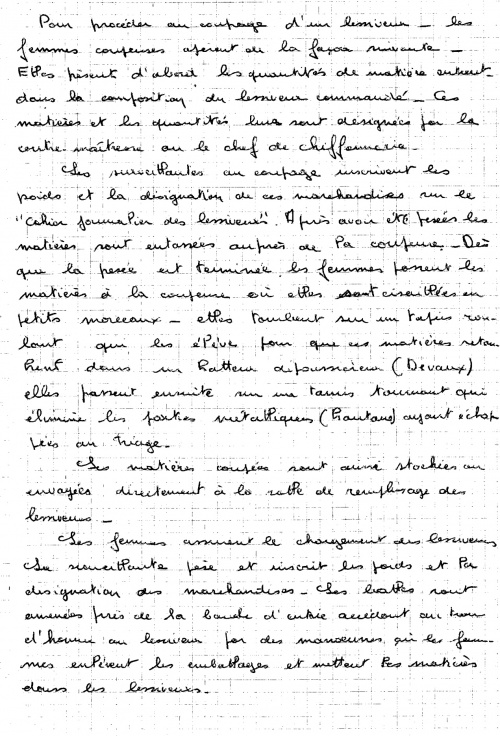 Pour procéder au coupage d'un lessiveur _ les
femmes coupeuses opèrent de la façon suivante _
Elles pèsent d'abord les quantités de matière entrant
dans la composition du lessiveur commandé _ Ces
matières et les quantités leur sont désignées par la
contre-maîtresse ou le chef de chiffonnerie _
Les surveillantes au coupage inscrivent les
poids et la désignation de ces marchandises sur le
"Cahier journalier des lessiveurs". Après avoir été pesées les
matières sont entassées auprès de la coupeuse _ Dès
que la pesée est terminée les femmes passent les
matières à la coupeuse où elles sont cisaillées en
petits morceaux _ elles tombent sur un tapis rou-
lant qui les élève pour que ces matières retom
bent dans un batteur dépoussiéreur (Devaux)
elles passent ensuite sur un tamis tournant qui
élimine les parties métalliques (boutons) ayant échap
pées au triage _
Les matières coupées sont ainsi stockées ou
envoyées directement à la salle de remplissage des
lessiveurs _
Les femmes assurent le chargement des lessiveurs
La surveillante pèse et inscrit les poids et la
désignation des marchandises _ Les balles sont
amenées près de la bouche d'entrée accédant au trou
d'homme du lessiveur par des manoeuvres, où les fem-
mes enlèvent les emballages et mettent les matières
dans les lessiveurs _